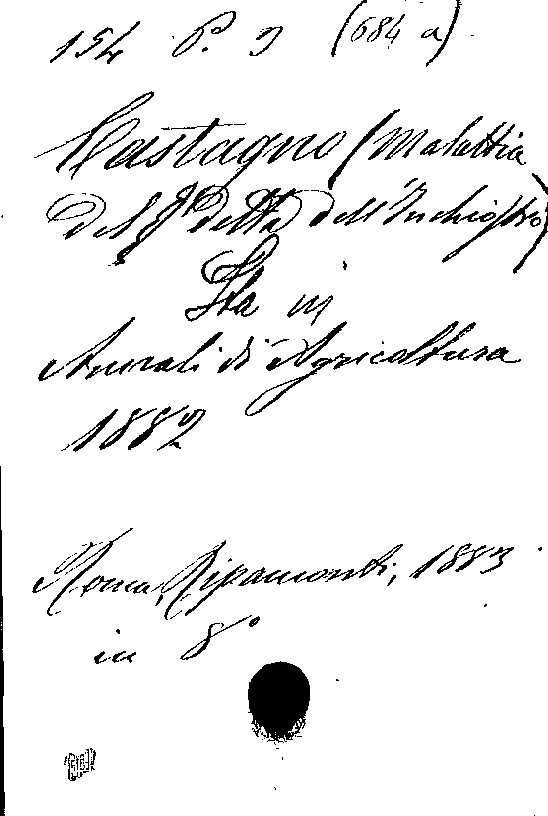 154 P. 9 (684 a)
Castagno (Malattia
del g detta dell'Inchiostro)
Sta in
Annali di Agricoltura
1882
Roma, Ripamonti, 1883
in 8°